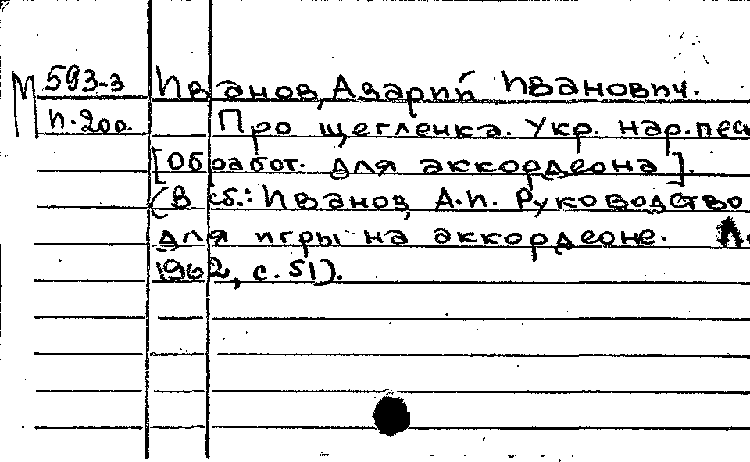 М 593-3 Иванов, Азарий Иванович.
И.200. Про щегленка. Укр. нар. пес
[Обработ. для аккордеона].
(В сб.: Иванов, А.И. Руководство
для игры на аккордеоне. Л.
1962, с. 51).